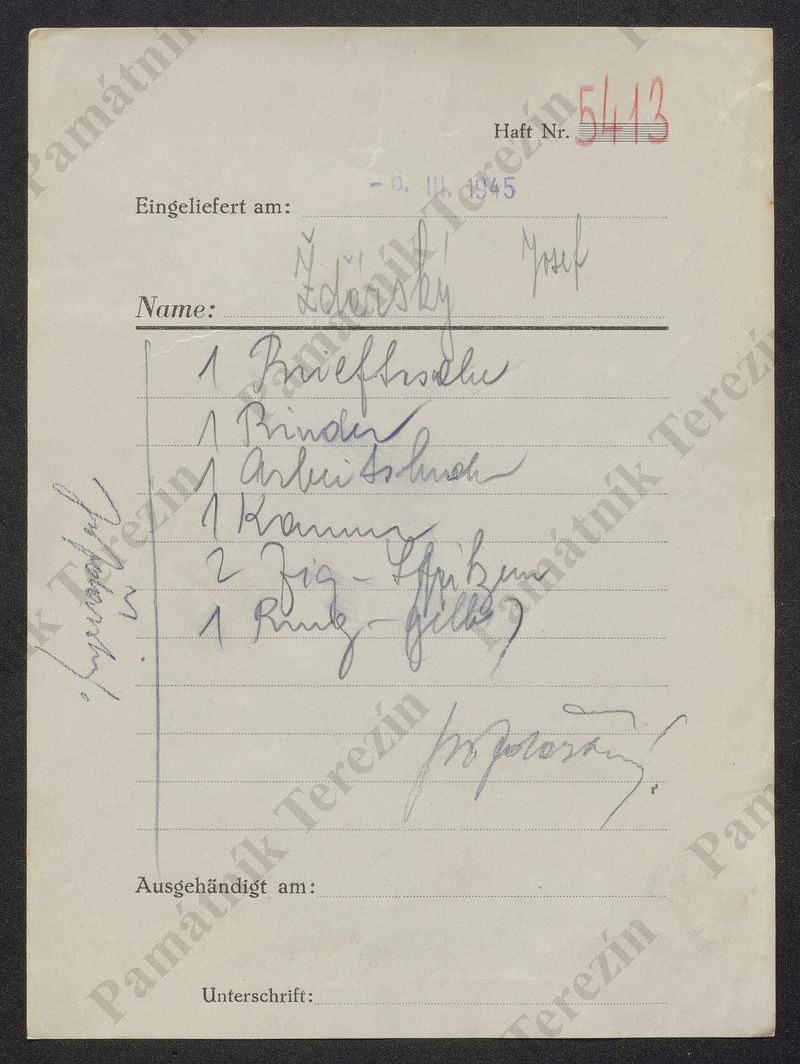 Haft Nr. 5413
Eingeliefert am: - 6. III. 1945
Name: Žďárský Josef
1 Brieftasche
1 Binder
1 Arbeitsbuch
1 Kamm
2 Zig - Spitzen
1 Ring - gelb
Ausgehändigt am:
Unterschrift:
Památník Terezín